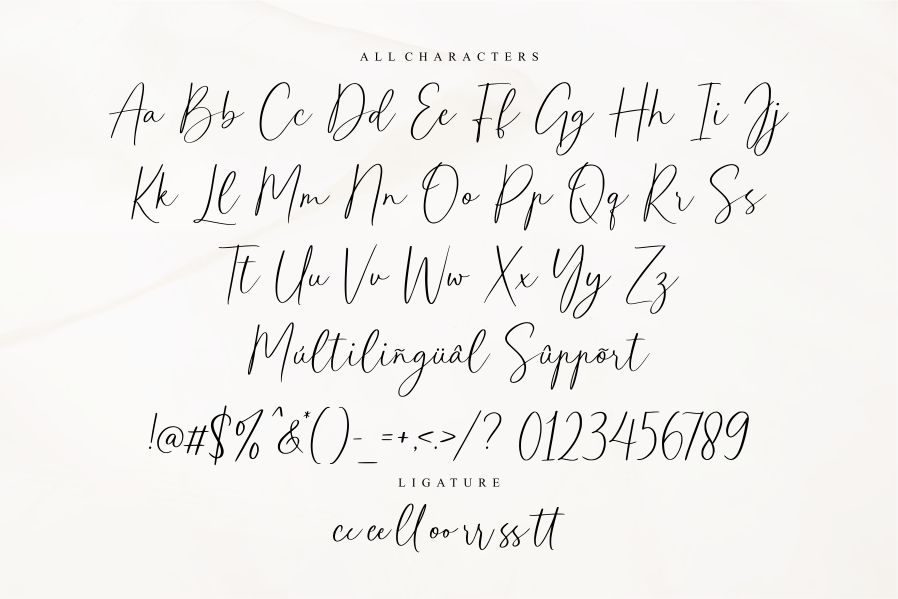 ALL CHARACTERS
Aa Bb Cc Dd Ee Ff Gg Hh Ii Jj
Kk Ll Mm Nn Oo Pp Qq Rr Ss
Tt Uu Vv Ww Xx Yy Zz
Múltiliñgüâl Sûppõrt
!@#$%^&*()-_=+,<.>/? 0123456789
LIGATURE
cc ee ll oo rr ss tt